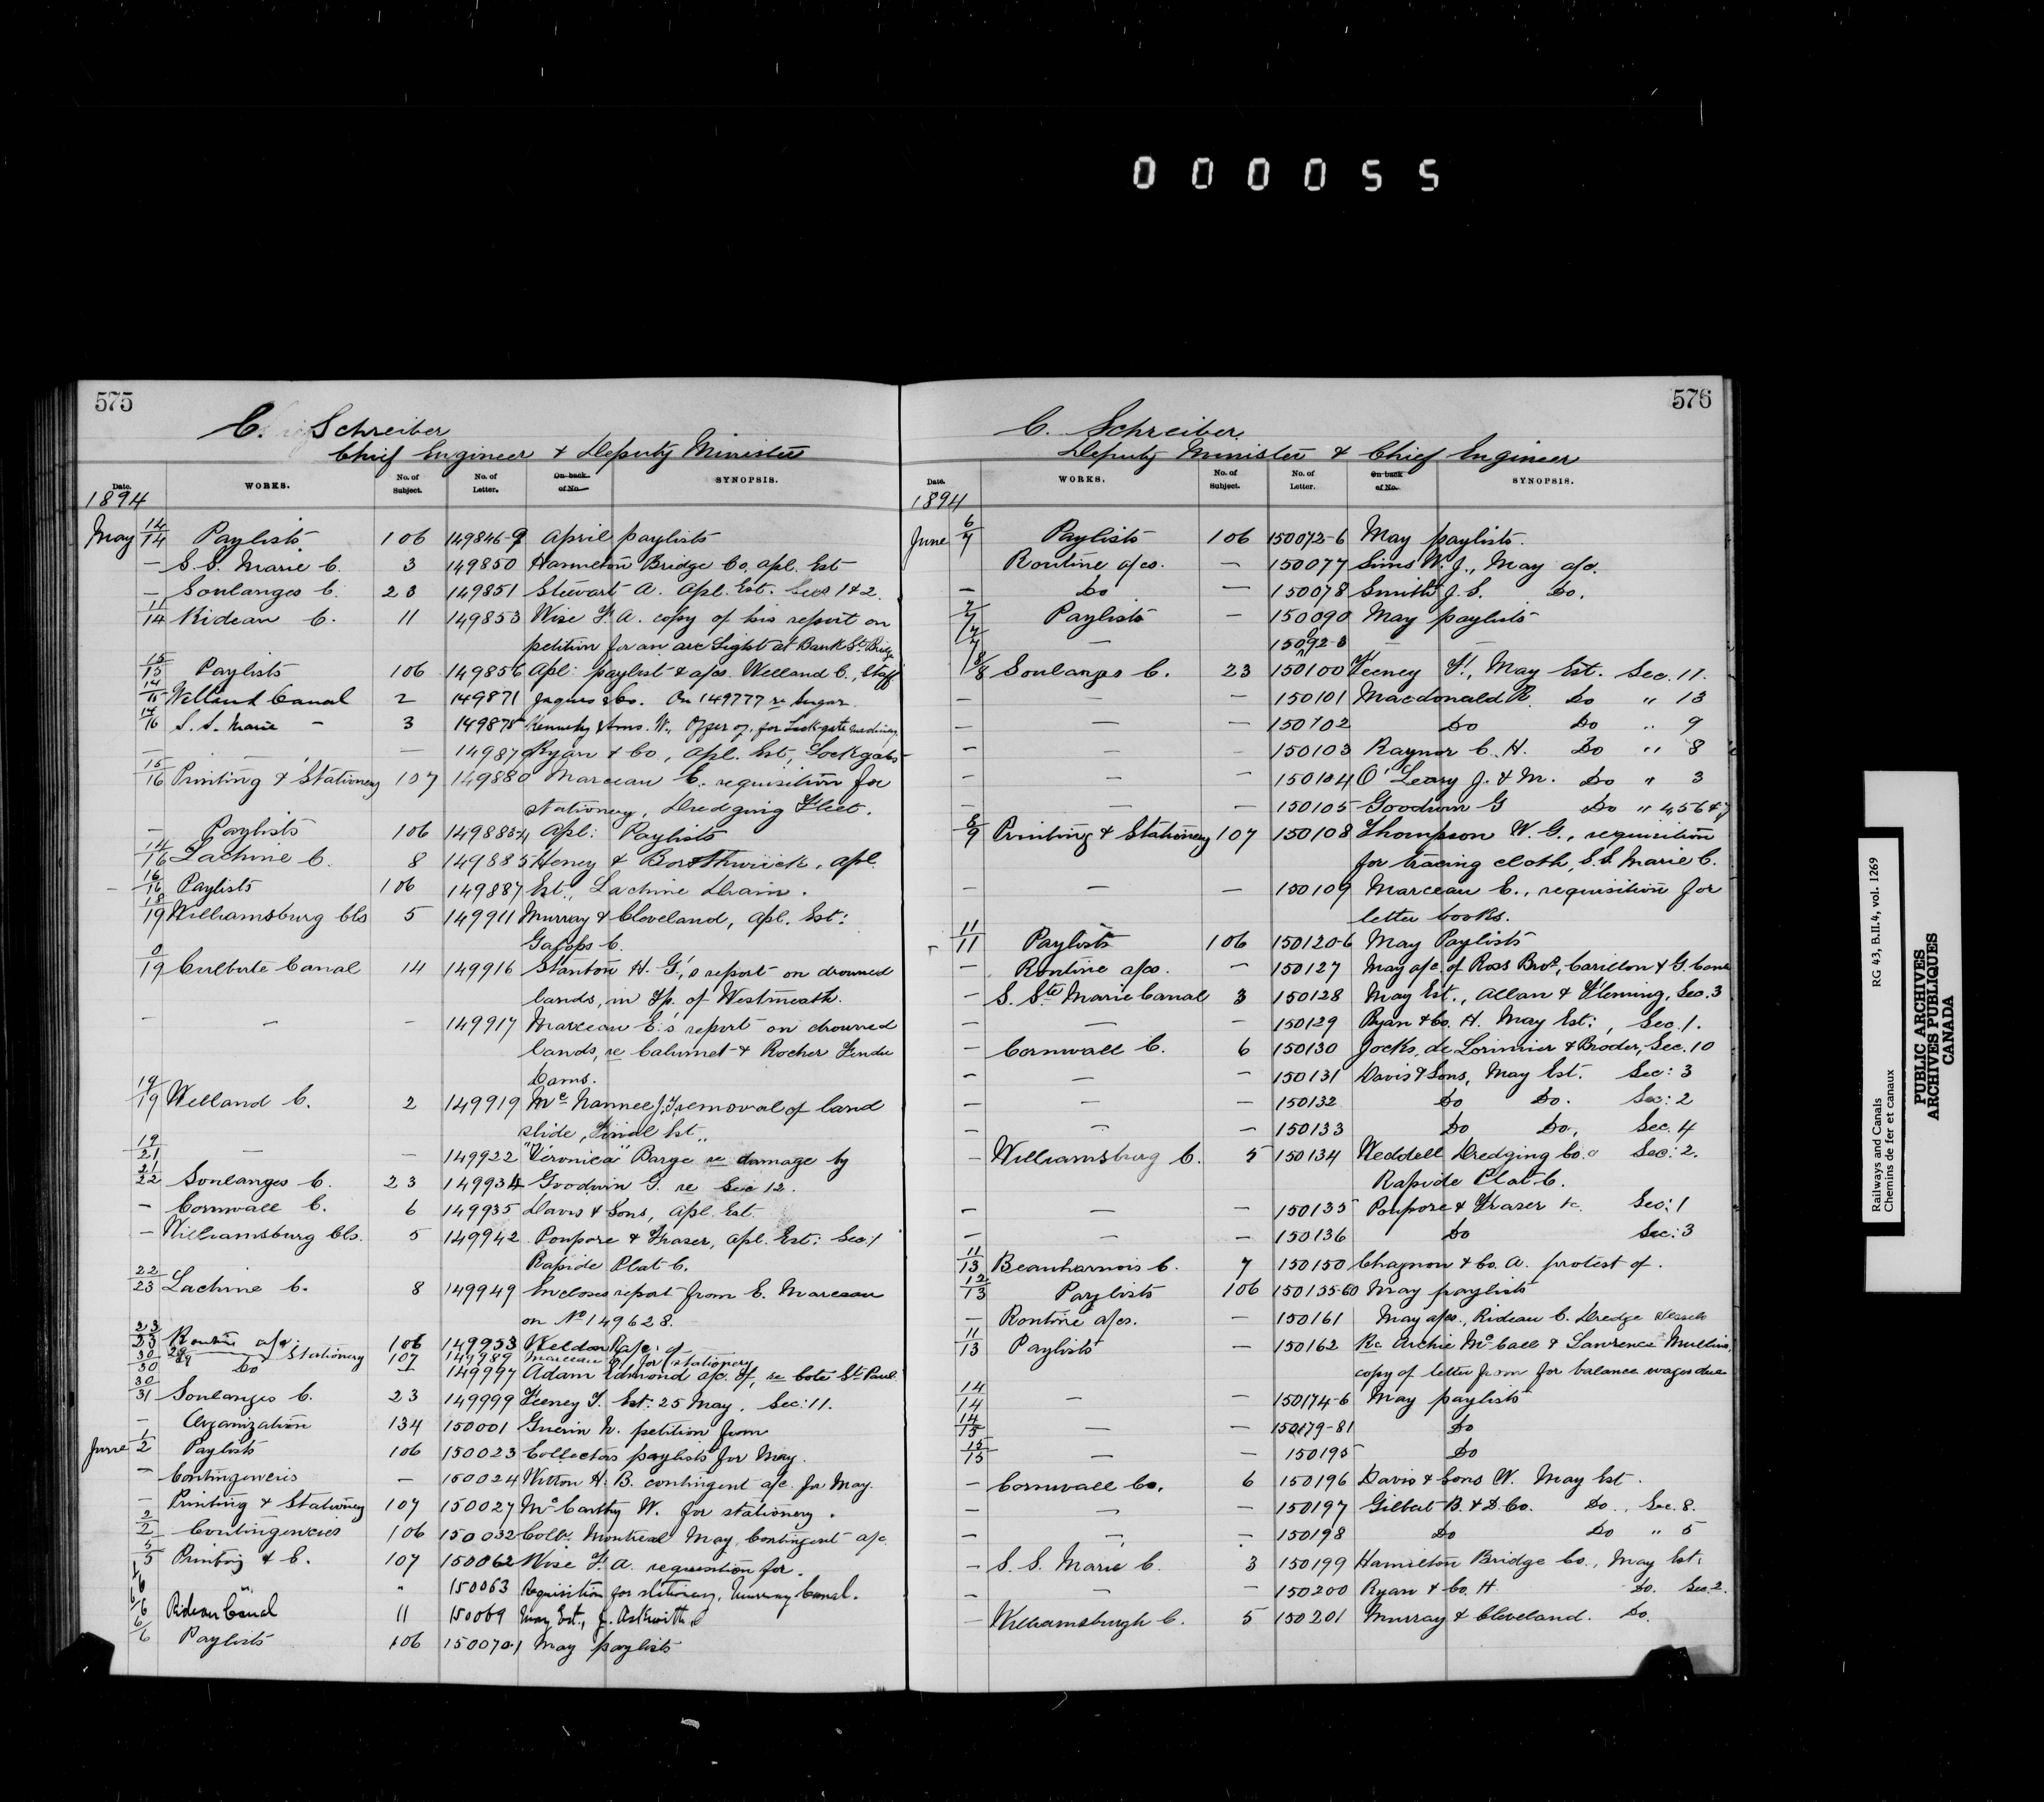 000055
575
C. Schreiber
Chief Engineer & Deputy Minister
Date. WORKS. No. of Subject. No. of Letter. On back of No. SYNOPSIS.
1894
May 14/14 Paylists 106 149846-9 April paylists
— S. S. Marie C. 3 149850 Hamilton Bridge Co. apl. Est
— Soulanges C. 23 149851 Stewart A. Apl. Est. Secs 1 & 2.
11/14 Rideau C. 11 149853 Wise F. A. copy of his report on
petition for an arc Light at Bank St. Bridge
15/15 Paylists 106 149856 Apl: paylist & a/cs. Welland C., Staff
14/15 Welland Canal 2 149871 Jaques & Co. On 149777 re Sugar.
14/16 S. S. Marie — 3 149875 Kennedy & Sons. W., Offer of, for Lock-gate
— — 149879 Ryan & Co., Apl. Est, Lockgates
15/16 Printing & Stationery 107 149880 Marceau E. requisition for
stationery, Dredging Fleet.
— Paylists 106 149883-4 Apl: Paylists
14/16 Lachine C. 8 149885 Heney & Borthwick, apl.
16/16 Paylists 106 149887 Est., Lachine Drain.
18/19 Williamsburg Cls 5 149911 Murray & Cleveland, Apl. Est:
Galops C.
9/19 Culbute Canal 14 149916 Stanton H. G.'s report on drowned
lands, in Tp. of Westmeath.
— — — 149917 Marceau E.'s report on drowned
lands, re Calumet & Rocher Fendu
Dams.
19/19 Welland C. 2 149919 McNamee J. F. removal of land
slide, Final Est.,
19/21 — — 149922 "Veronica" Barge re damage by
21/22 Soulanges C. 23 149934 Goodwin G. re Sec 12.
— Cornwall C. 6 149935 Davis & Sons, Apl. Est.
— Williamsburg Cls. 5 149942 Poupore & Fraser, apl. Est: Sec: 1
Rapide Plat C.
22/23 Lachine C. 8 149949 Incloses report from E. Marceau
on No 149628.
23/23 Routine a/cs. 106 149953 Weldon R. a/c. of
30/30 Stationery 107 149989 Marceau E. for stationery
Do — 149997 Adam Edmond a/c. of, re Cote St. Paul
30/31 Soulanges C. 23 149999 Feeney T. Est: 25 May, Sec: 11.
— Organization 134 150001 Guerin N. petition from
June 1/2 Paylists 106 150023 Collectors paylists for May.
— Contingencies — 150024 Witton H. B. contingent a/c. for May.
— Printing & Stationery 107 150027 McCarthy W. for stationery.
2/2 Contingencies 106 150032 Collr. Montreal May, Contingent a/c.
5/5 Printing & S. 107 150062 Wise F. A. requisition for.
" " 150063 Requisition for stationery, Murray Canal.
6/6 Rideau Canal 11 150069 May Est., J. Askwith
6/6 Paylists 106 150070-1 May paylists
576
C. Schreiber.
Deputy Minister & Chief Engineer
Date. WORKS. No. of Subject. No. of Letter. On back of No. SYNOPSIS.
1894
June 6/7 Paylists 106 150072-6 May paylists.
Routine a/cs. — 150077 Sims W. J., May a/c.
— Do — 150078 Smith J. S. Do.
7/7 Paylists — 150090 May paylists
7/7 — 15092-3 —
8/8 Soulanges C. 23 150100 Feeney T., May Est. Sec. 11.
— — — 150101 Macdonald R. Do " 13
— — — 150102 Do Do " 9
— — — 150103 Raynor C. H. Do " 8
— — — 150104 O'Leary J. & M. Do " 3
— — — 150105 Goodwin G Do " 4, 5 6 & 7
8/9 Printing & Stationery 107 150108 Thompson W. G., requisition
for tracing cloth, S. S. Marie C.
— — — 150109 Marceau E., requisition for
letter books.
11/11 Paylists 106 150120-6 May Paylists
— Routine a/cs. — 150127 May a/c. of Ross Bros, Carillon & G. Canal
— S. Ste Marie Canal 3 150128 May Est., Allan & Fleming, Sec. 3
— — — 150129 Ryan & Co. H. May Est:, Sec. 1.
— Cornwall C. 6 150130 Jocks, de Lorimier & Broder, Sec. 10
— — — 150131 Davis & Sons, May Est. Sec: 3
— — — 150132 Do Do. Sec: 2
— — — 150133 Do Do, Sec. 4
— Williamsburg C. 5 150134 Weddell Dredging Co. Sec: 2.
Rapide Plat C.
— — — 150135 Poupore & Fraser Sec: 1
— — — 150136 Do Sec: 3
11/13 Beauharnois C. 7 150150 Chagnon & Co. A. protest of.
12/13 Paylists 106 150155-60 May paylists
— Routine a/cs. — 150161 May a/cs., Rideau C. Dredge Vessels
11/13 Paylists — 150162 Re Archie McCall & Lawrence Mullins,
copy of letter from for balance wages due
14/14 — — 150174-6 May paylists
14/15 — — 150179-81 Do
15/15 — — 150195 Do
— Cornwall Co. 6 150196 Davis & Sons W. May Est.
— — — 150197 Gilbert B. & D. Co. Do., Sec. 8.
— — — 150198 Do Do " 5
— S. S. Marie C. 3 150199 Hamilton Bridge Co., May Est:
— — — 150200 Ryan & Co. H. Do. Sec. 2.
— Williamsburgh C. 5 150201 Murray & Cleveland. Do.
Railways and Canals RG 43, B.II.4, vol. 1269
Chemins de fer et canaux
PUBLIC ARCHIVES
ARCHIVES PUBLIQUES
CANADA